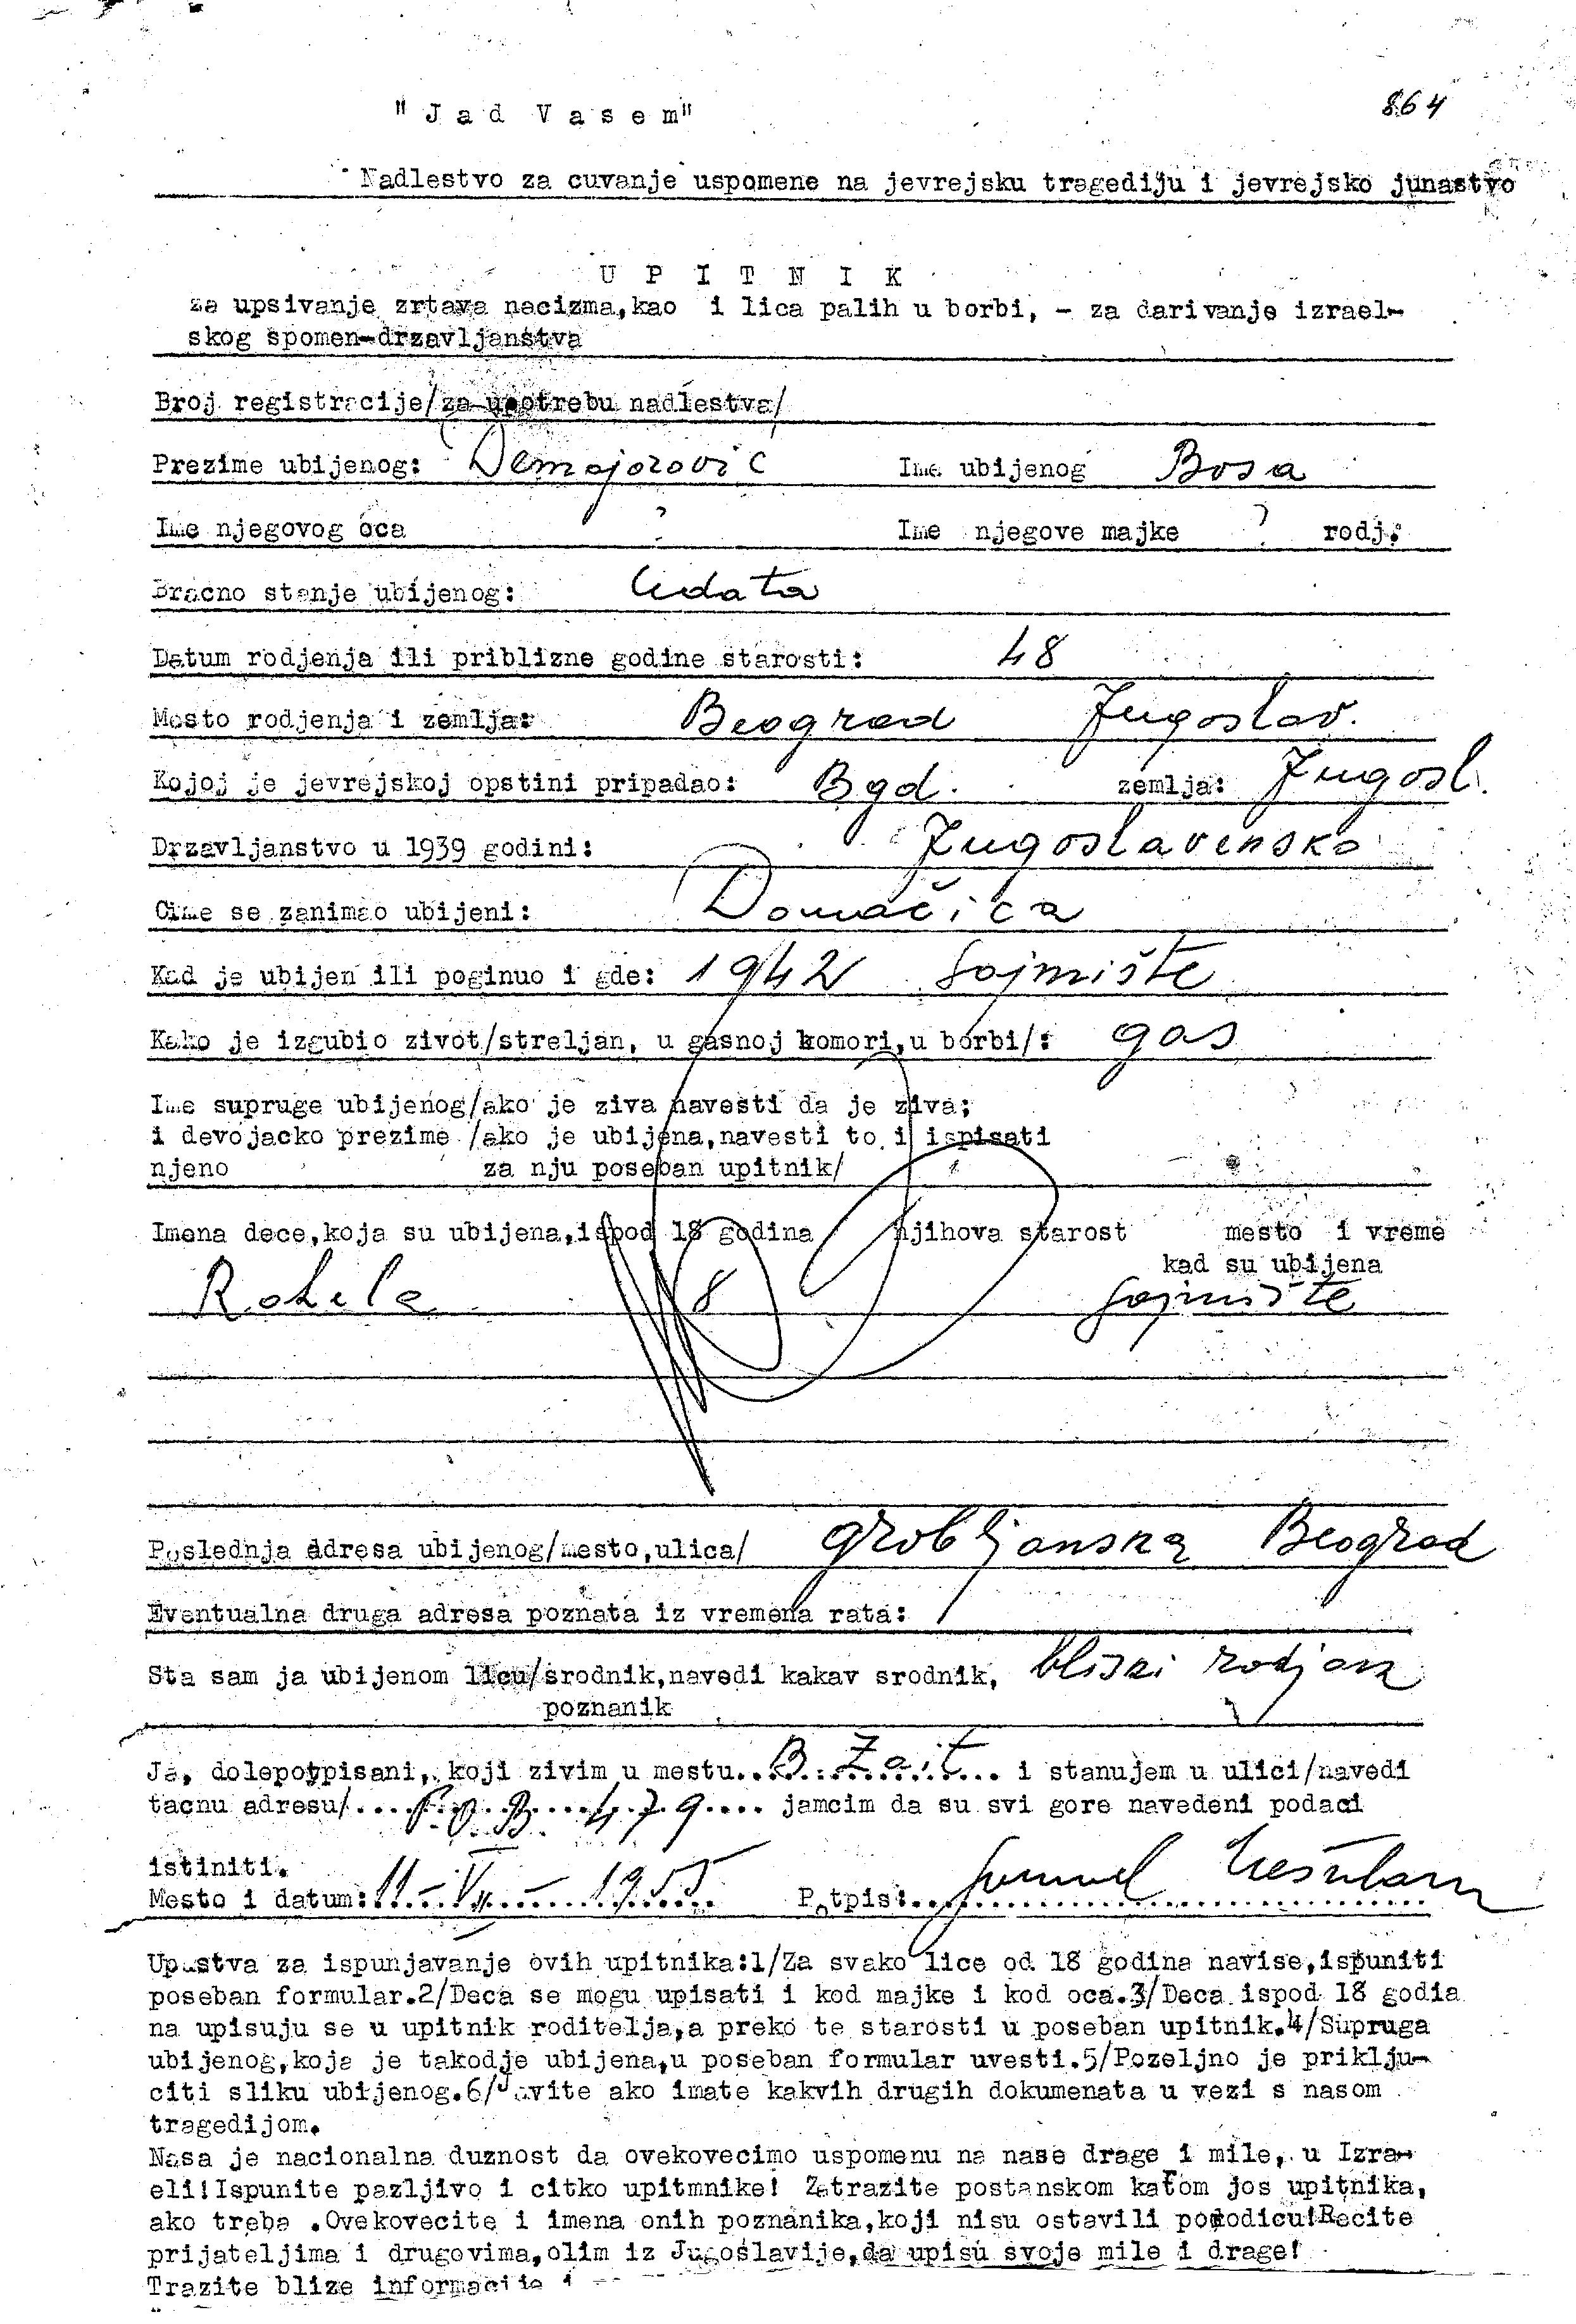 "Jad Vasem"
864
Nadlestvo za cuvanje uspomene na jevrejsku tragediju i jevrejsko junastvo
UPITNIK
za upsivanje zrtava nacizma,kao i lica palih u borbi, - za darivanje izrael-
skog spomen-drzavljanstva
Broj registracije/za upotrebu nadlestva/
Prezime ubijenog: Demajorović Ime ubijenog Bosa
Ime njegovog oca ? Ime njegove majke ? rodj.:
Bracno stanje ubijenog: Udata
Datum rodjenja ili priblizne godine starosti: 48
Mesto rodjenja i zemlja: Beograd Jugoslav.
Kojoj je jevrejskoj opstini pripadao: Bgd. zemlja: Jugosl.
Drzavljanstvo u 1939 godini: Jugoslavensko
Cime se zanimao ubijeni: Domačica
Kad je ubijen ili poginuo i gde: 1942 Sajmište
Kako je izgubio zivot/streljan, u gasnoj komori,u borbi/: gas
Ime supruge ubijenog/ako je ziva navesti da je ziva;
i devojacko prezime /ako je ubijena,navesti to i ispisati
njeno za nju poseban upitnik/
Imena dece,koja su ubijena,ispod 18 godina njihova starost mesto i vreme
kad su ubijena
Rahela 8 Sajmište
Poslednja adresa ubijenog/mesto,ulica/ Grobljanska Beograd
Eventualna druga adresa poznata iz vremena rata: /
Sta sam ja ubijenom licu/srodnik,navedi kakav srodnik, bliski rodjak
poznanik
Ja, dolepotpisani, koji zivim u mestu..B. Zait... i stanujem u ulici/navedi
tacnu adresu/....P.O.B. 479.... jamcim da su svi gore navedeni podaci
istiniti.
Mesto i datum:11-V-1955 Potpis: Mešulam
Upustva za ispunjavanje ovih upitnika:1/Za svako lice od 18 godina navise,ispuniti
poseban formular.2/Deca se mogu upisati i kod majke i kod oca.3/Deca ispod 18 godia
na upisuju se u upitnik roditelja,a preko te starosti u poseban upitnik.4/Supruga
ubijenog,koja je takodje ubijena,u poseban formular uvesti.5/Pozeljno je priklju-
citi sliku ubijenog.6/Javite ako imate kakvih drugih dokumenata u vezi s nasom
tragedijom.
Nasa je nacionalna duznost da ovekovecimo uspomenu na nase drage i mile, u Izra-
eli!Ispunite pazljivo i citko upitmnike! Zatrazite postanskom katom jos upitnika,
ako treba .Ovekovecite i imena onih poznanika,koji nisu ostavili porodicu!Recite
prijateljima i drugovima,olim iz Jugoslavije,da upisu svoje mile i drage!
Trazite blize informacije i